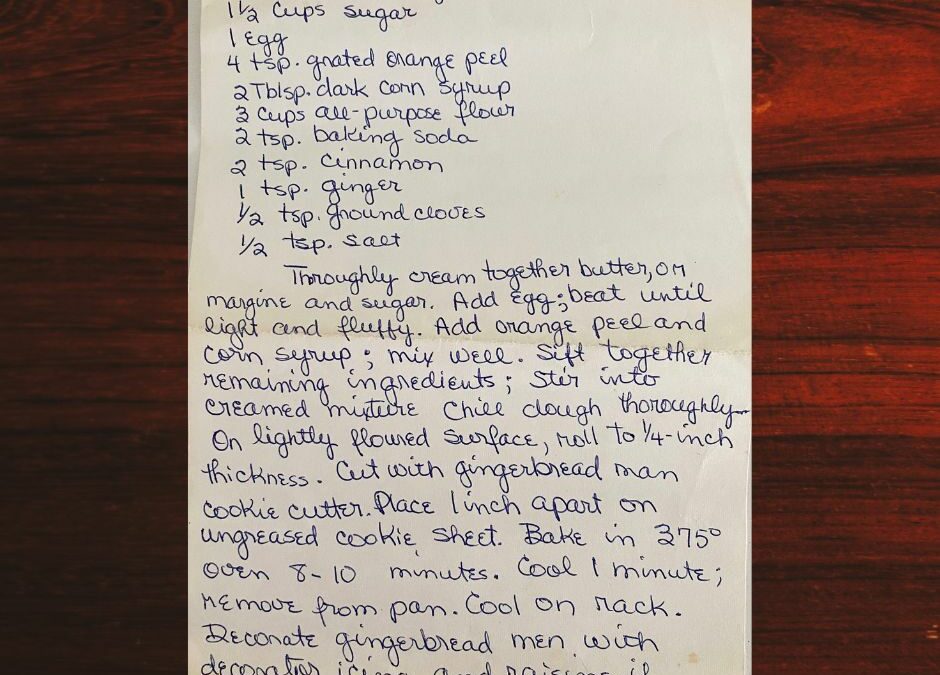 1 1/2 Cups sugar
1 Egg
4 tsp. grated orange peel
2 Tblsp. dark corn syrup
3 Cups all-purpose flour
2 tsp. baking soda
2 tsp. Cinnamon
1 tsp. ginger
1/2 tsp. ground cloves
1/2 tsp. salt
Thoroughly cream together butter, or
margine and sugar. Add Egg; beat until
light and fluffy. Add orange peel and
corn syrup; mix well. Sift together
remaining ingredients; stir into
creamed mixture Chill dough thoroughly
On lightly floured surface, roll to 1/4-inch
thickness. Cut with gingerbread man
cookie cutter. Place 1 inch apart on
ungreased cookie sheet. Bake in 375°
oven 8-10 minutes. Cool 1 minute;
remove from pan. Cool on rack.
Decorate gingerbread men with
decorator icing and raisins if